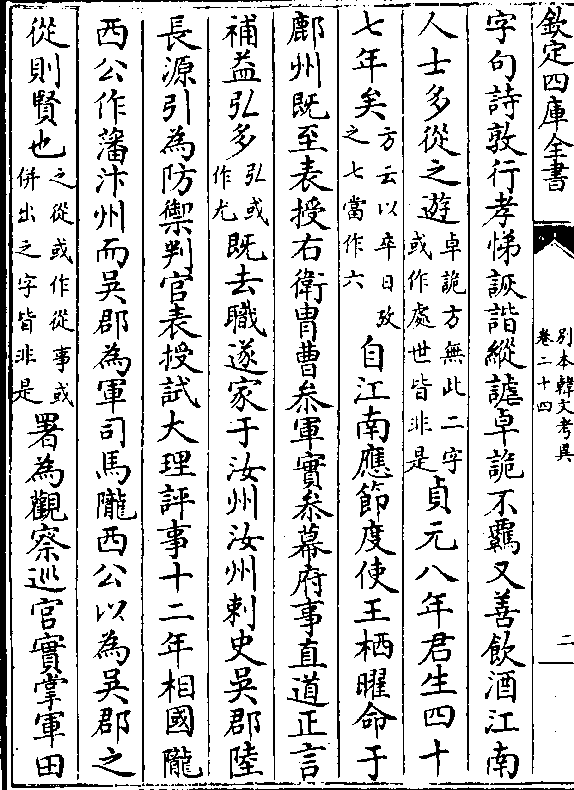 欽定四庫全書
別本韓文考異
卷二十四
二
字句詩敦行孝悌詼諧縱謔卓詭不羈又善飲酒江南
人士多從之遊卓詭方無此二字或作處世皆非是貞元八年君生四十
七年矣方云以卒日攷之七當作六自江南應節度使王栖曜命于
鄜州既至表授右衛胄曹叅軍實叅幕府事直道正言
補益弘多弘或作尤既去職遂家于汝州汝州刺史吳郡陸
長源引為防禦判官表授試大理評事十二年相國隴
西公作藩汴州而吳郡為軍司馬隴西公以為吳郡之
從則賢也之從或作從事或併出之字皆非是署為觀察巡官實掌軍田